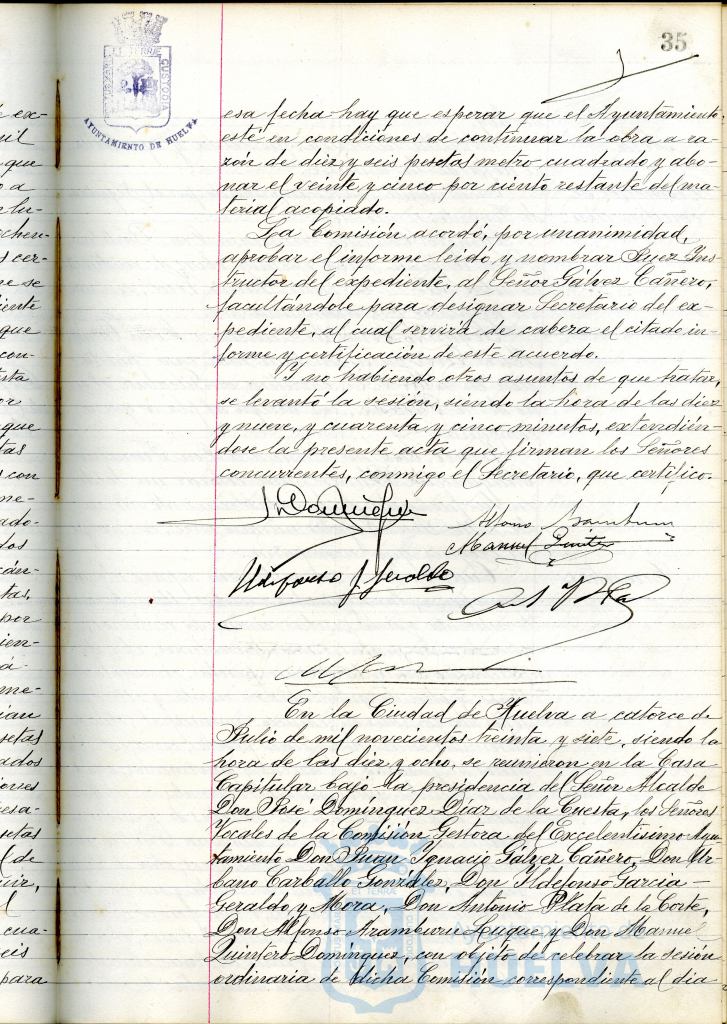 35
AYUNTAMIENTO DE HUELVA
esa fecha hay que esperar que el Ayuntamiento
esté en condiciones de continuar la obra a ra-
zón de diez y seis pesetas metro cuadrado y abo-
nar el veinte y cinco por ciento restante del ma-
terial acopiado.
La Comisión acordó, por unanimidad,
aprobar el informe leido y nombrar Juez Ins-
tructor del expediente, al Señor Gálvez Cañero,
facultándole para designar Secretario del ex-
pediente, al cual servirá de cabeza el citado in-
forme y certificación de este acuerdo.
Y no habiendo otros asuntos de que tratar,
se levantó la sesión, siendo la hora de las diez
y nueve, y cuarenta y cinco minutos, extendién-
dose la presente acta que firman los Señores
concurrentes, conmigo el Secretario, que certifico.
Manuel Quintero
Ildefonso G. Geraldo
En la Ciudad de Huelva a catorce de
Julio de mil novecientos treinta y siete, siendo la
hora de las diez y ocho, se reunieron en la Casa
Capitular bajo la presidencia del Señor Alcalde
Don José Domínguez Díaz de la Cuesta, los Señores
Vocales de la Comisión Gestora del Excelentísimo Ayun-
tamiento Don Juan Ignacio Gálvez Cañero, Don Ur-
bano Carballo González, Don Ildefonso Garcia-
Geraldo y Mora, Don Antonio Plata de la Corte,
Don Alfonso Aramburu Luque y Don Manuel
Quintero Domínguez, con objeto de celebrar la sesión
ordinaria de dicha Comisión correspondiente al dia